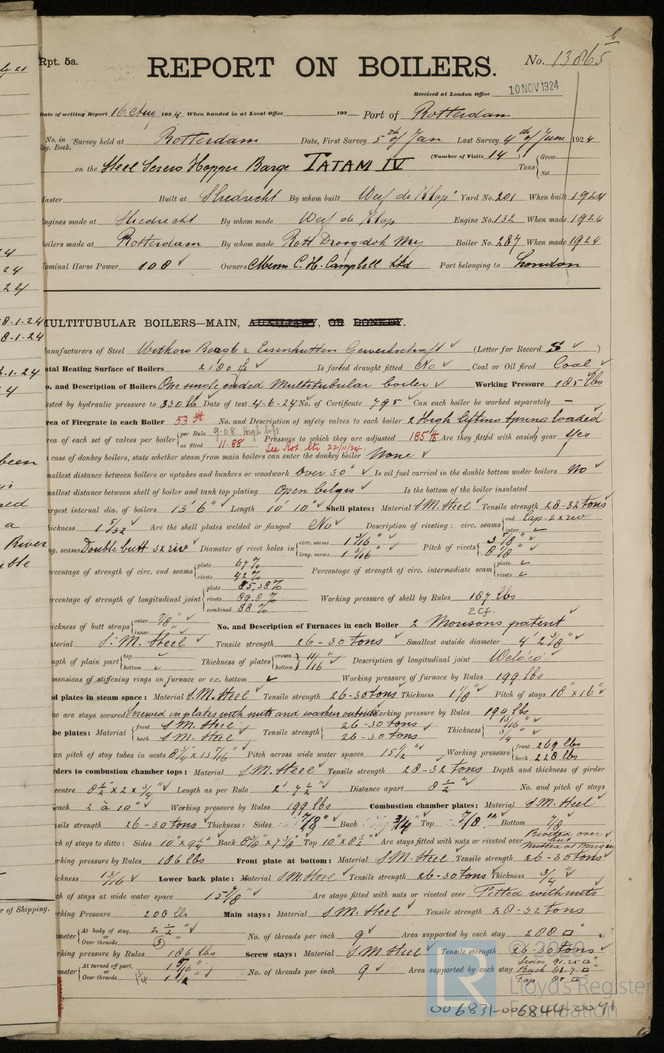 Rpt. 5a.
REPORT ON BOILERS.
No. 13865
Received at London Office
10 NOV 1924
Date of writing Report 16 Aug 1924 When handed in at Local Office 192 Port of Rotterdam
No. in Survey held at Rotterdam Date, First Survey 5th of Jan Last Survey 4th of June 1924
Reg. Book. (Number of Visits 14)
on the Steel Screw Hopper Barge TATAM IV Tons Gross Net
Master Built at Sliedrecht By whom built Yard No. 201 When built 1924
Engines made at Sliedrecht By whom made Engine No. 132 When made 1924
Boilers made at Rotterdam By whom made Rott Droogdok My Boiler No. 287 When made 1924
Nominal Horse Power 108 Owners Messrs C. H. Campbell Ltd Port belonging to London
MULTITUBULAR BOILERS—MAIN, AUXILIARY, OR DONKEY.
Manufacturers of Steel (Letter for Record S)
Total Heating Surface of Boilers 2180 Is forced draught fitted No Coal or Oil fired Coal
No. and Description of Boilers One single ended Multitubular boiler Working Pressure 185 lbs
Tested by hydraulic pressure to 330 lb Date of test 4-6-24 No. of Certificate 795 Can each boiler be worked separately —
Area of Firegrate in each Boiler 53 No. and Description of safety valves to each boiler 2 High lifting spring loaded
Area of each set of valves per boiler per Rule 9.08 as fitted 11.88 Pressure to which they are adjusted 185 Are they fitted with easing gear Yes
In case of donkey boilers, state whether steam from main boilers can enter the donkey boiler None
Smallest distance between boilers or uptakes and bunkers or woodwork Over 30" Is oil fuel carried in the double bottom under boilers No
Smallest distance between shell of boiler and tank top plating Open bilges Is the bottom of the boiler insulated
Largest internal dia. of boilers 13' 6" Length 10' 10" Shell plates: Material S.M. Steel Tensile strength 28-32 tons
Thickness 1 5/32 Are the shell plates welded or flanged No Description of riveting: circ. seams end Lap 2 x riv inter.
long. seams Double butt 3x riv Diameter of rivet holes in circ. seams 1 3/16 long. seams 1 3/16 Pitch of rivets 3 5/8 8 1/8
Percentage of strength of circ. end seams plate 67% rivets 42% Percentage of strength of circ. intermediate seam plate rivets
Percentage of strength of longitudinal joint plate 85.38% rivets 89.8% combined 88% Working pressure of shell by Rules 187 lbs
Thickness of butt straps outer 7/8 inner No. and Description of Furnaces in each Boiler 2 Morisons patent
Material S.M. Steel Tensile strength 26-30 tons Smallest outside diameter 4' 2 3/8"
Length of plain part top bottom Thickness of plates crown bottom 11/16 Description of longitudinal joint Welded
Dimensions of stiffening rings on furnace or c.c. bottom Working pressure of furnace by Rules 199 lbs
End plates in steam space: Material S.M. Steel Tensile strength 26-30 tons Thickness 1 1/8 Pitch of stays 18" x 16"
How are stays secured Screwed in plates with nuts and washer outside Working pressure by Rules 190 lbs
Tube plates: Material front S.M. Steel back S.M. Steel Tensile strength 26-30 tons 26-30 tons Thickness 15/16 3/4
Mean pitch of stay tubes in nests Pitch across wide water spaces 15 1/2 Working pressure front 269 lbs back 228 lbs
Girders to combustion chamber tops: Material S.M. Steel Tensile strength 28-32 tons Depth and thickness of girder
at centre 8 1/2 x 2 x 3/4 Length as per Rule 2' 7 1/2 Distance apart 8 1/2 No. and pitch of stays
in each 2 à 10" Working pressure by Rules 199 lbs Combustion chamber plates: Material S.M. Steel
Tensile strength 26-30 tons Thickness: Sides 7/8 Back 3/4 Top 7/8 Bottom 7/8
Pitch of stays to ditto: Sides 10" x 9 1/2 Back 8 5/8 x 7 7/8 Top 10" x 8 1/2 Are stays fitted with nuts or riveted over Riveted over
Working pressure by Rules 186 lbs Front plate at bottom: Material S.M. Steel Tensile strength 26-30 tons
Thickness 15/16 Lower back plate: Material S.M. Steel Tensile strength 26-30 tons Thickness 3/4
Pitch of stays at wide water space 15 7/8 Are stays fitted with nuts or riveted over Fitted with nuts
Working Pressure 200 lbs Main stays: Material S.M. Steel Tensile strength 28-32 tons
Diameter At body of stay, 2 1/2 Over threads (3) No. of threads per inch 9 Area supported by each stay 288
Working pressure by Rules 186 lbs Screw stays: Material S.M. Steel Tensile strength 26-30 tons
Diameter At turned off part, Over threads No. of threads per inch 9 Area supported by each stay Sides 91.25 Back 61.7 Top 85
© 2020
Lloyd's Register
Foundation
006831-006844-0091